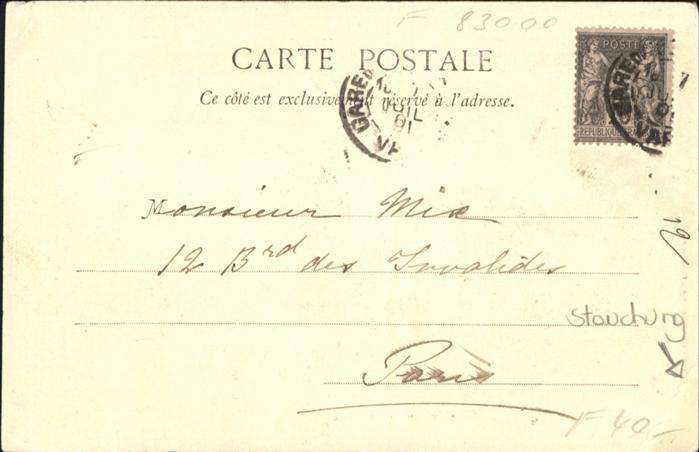 F 83000
CARTE POSTALE
Ce côté est exclusivement réservé à l'adresse.
POSTE
REPUBLIQUE
GARE
JUIL
01
GARE
Monsieur Mix
12 Brd des Invalides
Paris
F 40-